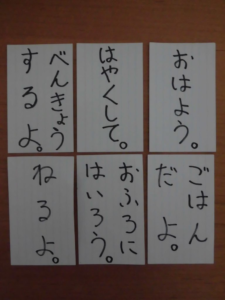 おはよう。
はやくして。
べんきょう
するよ。
ごはん
だよ。
おふろに
はいろう。
ねるよ。